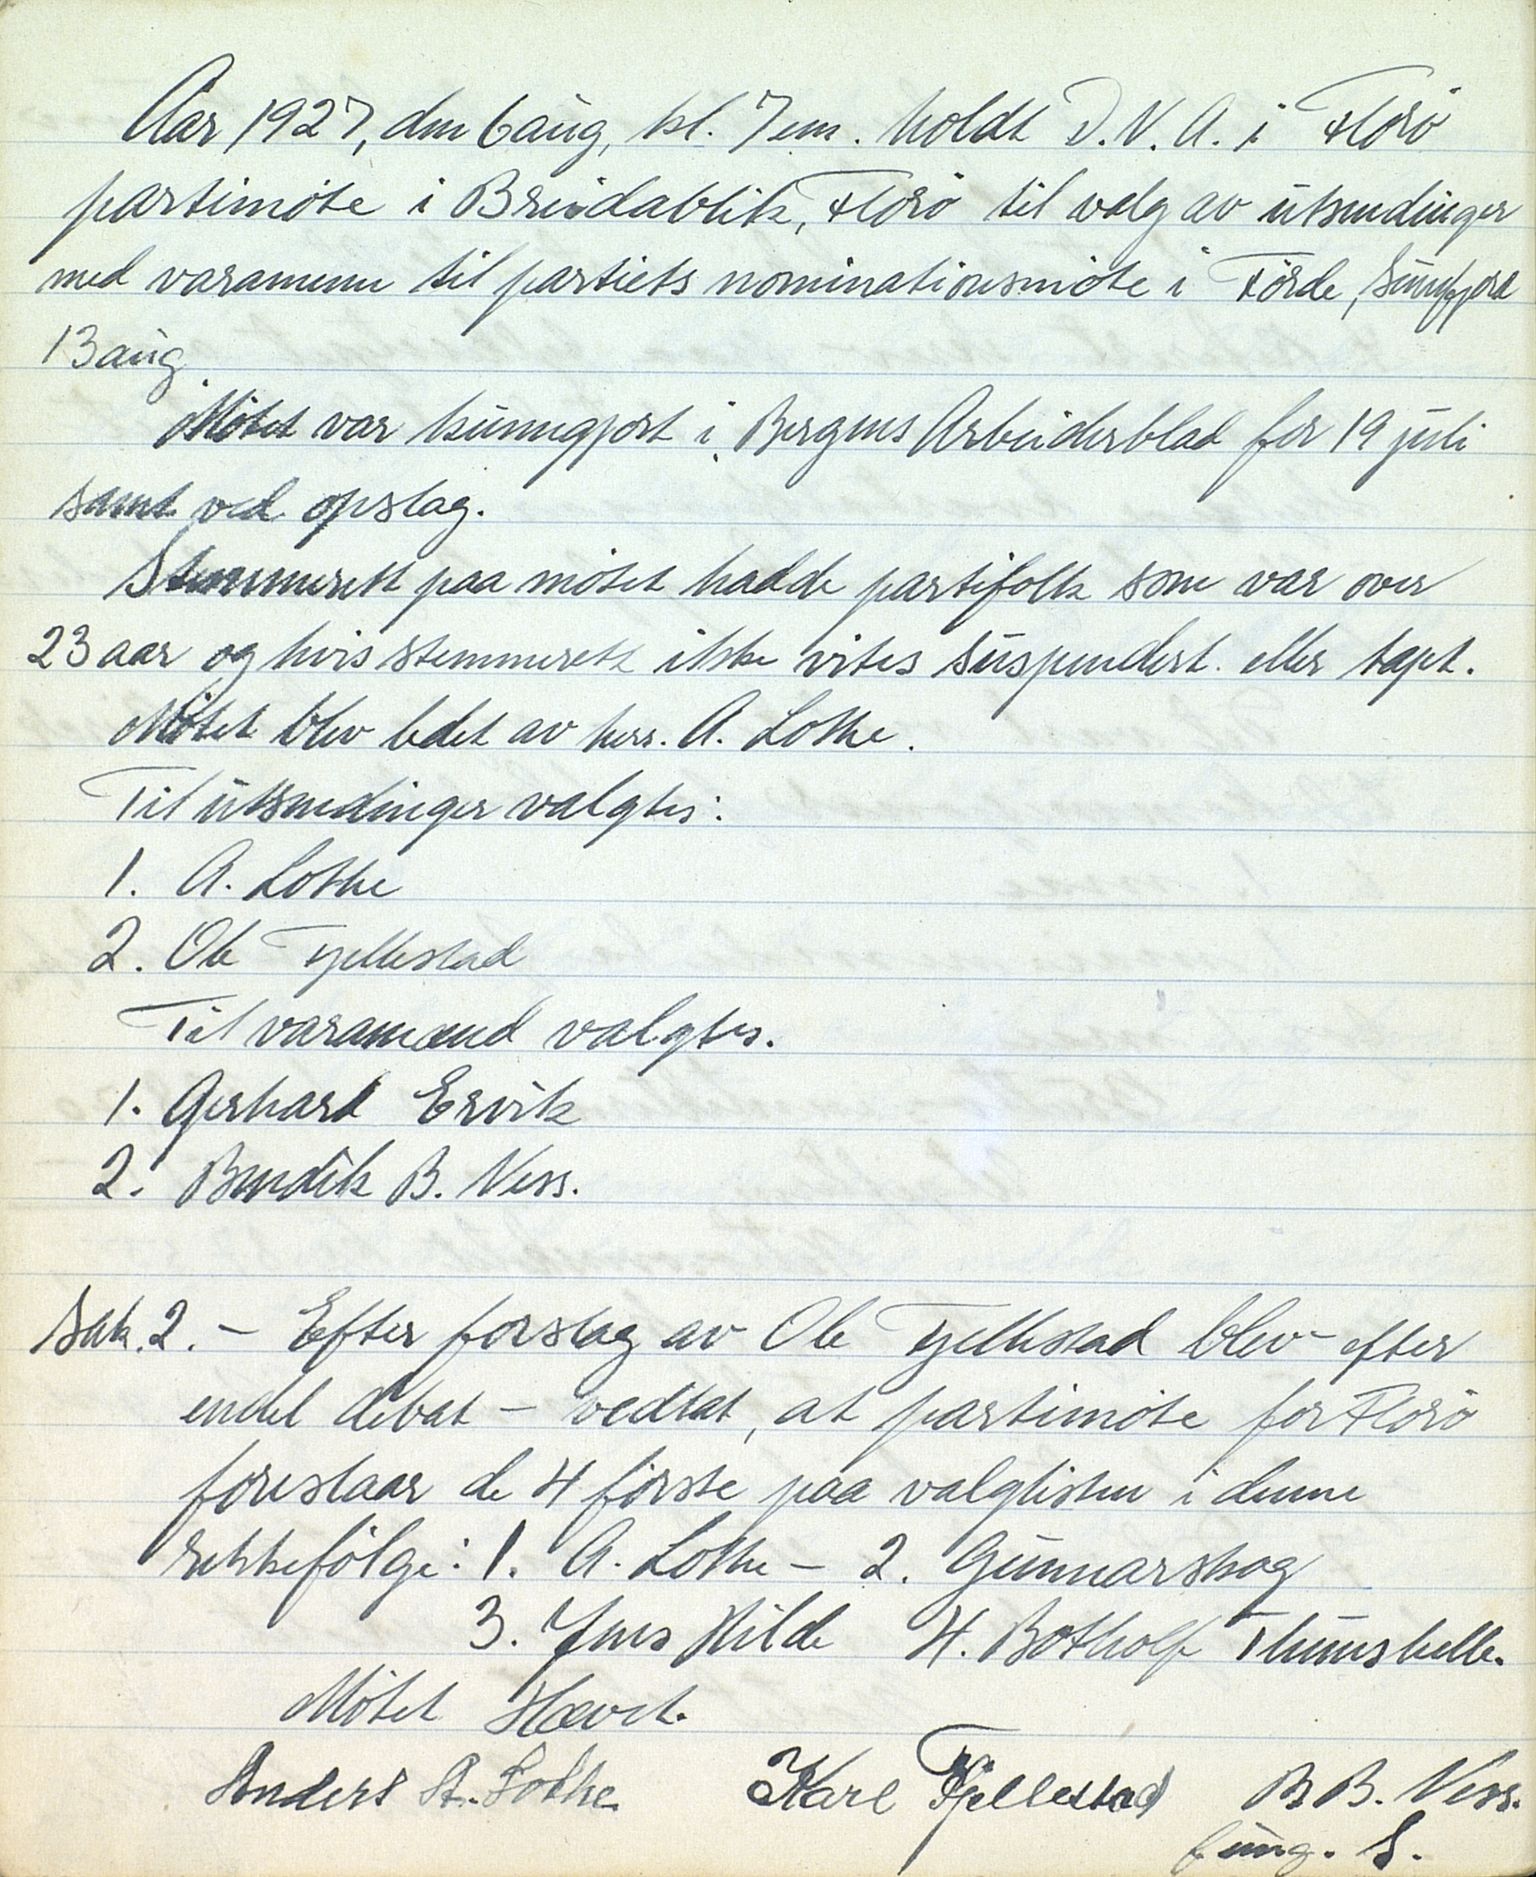 Aar 1927, den 6 aug, kl. 7 em. holdt D.N.A. i Florö
partimöte i Breidablik, Florö til valg av utsendinger
med varamenn til partiets nominationsmöte i Förde, Sunnfjord
13 aug
Mötet var kunngjort i Bergens Arbeiderblad for 19 juli
samt ved opslag.
Stemmerett paa mötet hadde partifolk som var over
23 aar og hvis stemmerett ikke vites suspendert eller tapt.
Mötet blev ledet av herr. A. Lothe.
Til utsendinger valgtes:
1. A. Lothe
2. Ole Fjellestad
Til varamænd valgtes.
1. Gerhard Ervik
2. Bendik B. Ness.
Sak. 2. – Efter forslag av Ole Fjellestad blev – efter
endel debat – vedtat, at partimöte for Florö
foreslaar de 4 förste paa valglisten i denne
rekkefölge: 1. A. Lothe – 2. Gunnarskog
3. Jens Hilde 4. Botholf
Mötet Hævet.
Anders A. Lothe. Karl Fjellestad B. B. Ness.
fung. S.